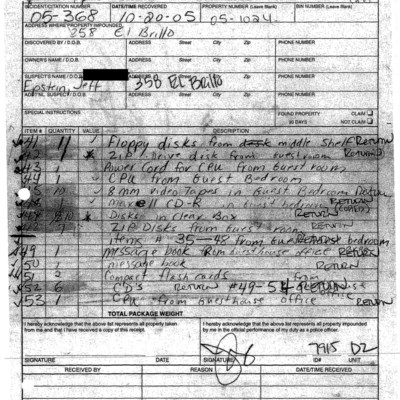 INCIDENT/CITATION NUMBER DATE/TIME RECOVERED PROPERTY NUMBER (Leave Blank) BIN NUMBER (Leave Blank)
05-368 10-20-05 05-1024
ADDRESS WHERE PROPERTY IMPOUNDED
358 El Brillo
DISCOVERED BY / D.O.B. ADDRESS Street City Zip PHONE NUMBER
OWNER'S NAME / D.O.B. ADDRESS Street City Zip PHONE NUMBER
SUSPECT'S NAME / D.O.B. ADDRESS Street City Zip PHONE NUMBER
Epstein, Jeff 358 El Brillo
SUSPECT'S NAME / D.O.B. ADDRESS Street City Zip PHONE NUMBER
SPECIAL INSTRUCTIONS FOUND PROPERTY CLAIM
90 DAYS NOT CLAIM
ITEM # QUANTITY VALUE DESCRIPTION
41 Floppy disks from middle shelf RETURN
42 ZIP Drive disk from guest room RETURN
43 1 Power Cord for CPU from guest room
44 1 CPU from guest Bedroom
45 10 8mm video Tapes in Guest Bedroom Return
1 Maxell CD-R in guest bedroom RETURN
Disks in Clear Box RETURN
ZIP Disks from guest room RETURN
items # 35-48 from guest bedroom
49 1 message book from guesthouse office RETURN
50 1 message book RETURN
51 2 Compact flash cards RETURN
52 6 CD's RETURN #49-54 RETURN
53 1 CPU from Guesthouse office RETURN
TOTAL PACKAGE WEIGHT
I hereby acknowledge that the above list represents all property taken from me and that I have received a copy of this receipt.
I hereby acknowledge that the above list represents all property impounded by me in the official performance of my duty as a police officer.
7915 D2
SIGNATURE DATE SIGNATURE ID# UNIT
RECEIVED BY REASON RECEIVED BY DATE/TIME RECEIVED